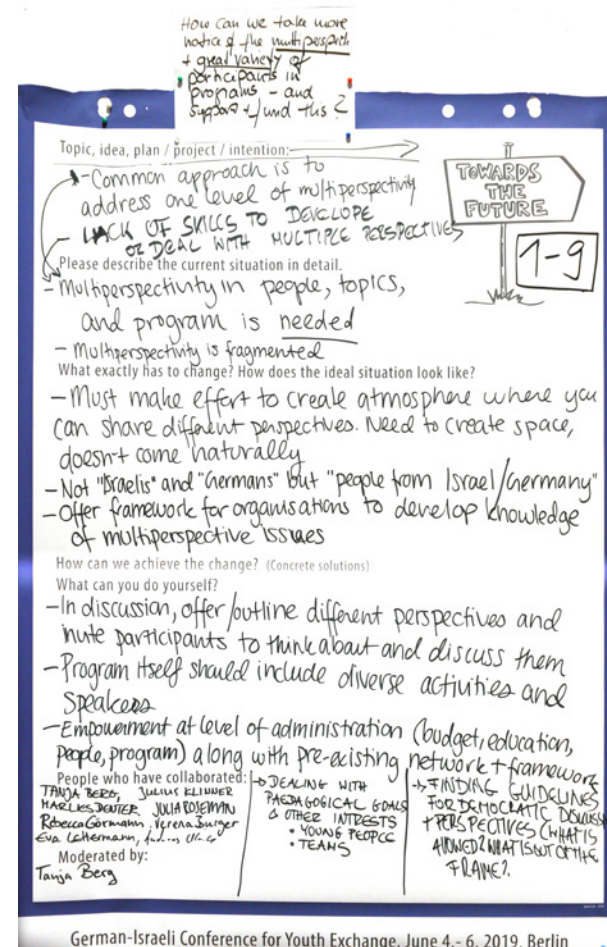 How can we take more
notice of the multiperspect.
+ great variety of
participants in
programs - and
support + fund this?
Topic, idea, plan / project / intention:
- Common approach is to
address one level of multiperspectivity
- LACK OF SKILLS TO DEVELOPE
OR DEAL WITH MULTIPLE PERSPECTIVES
TOWARDS
THE
FUTURE
1-9
Please describe the current situation in detail.
- Multiperspectivity in people, topics,
and program is needed
- Multiperspectivity is fragmented
What exactly has to change? How does the ideal situation look like?
- Must make effort to create atmosphere where you
can share different perspectives. Need to create space,
doesn't come naturally
- Not "Israelis" and "Germans" but "people from Israel/Germany"
- Offer framework for organisations to develop knowledge
of multiperspective issues
How can we achieve the change? (Concrete solutions)
What can you do yourself?
- In discussion, offer/outline different perspectives and
invite participants to think about and discuss them
- Program itself should include diverse activities and
speakers
- Empowerment at level of administration (budget, education,
people, program) along with pre-existing network + framework
People who have collaborated:
TANJA BERG, JULIUS KLINNER
MARLIES DENTER JULIA ROSEMAN
Rebecca Görmann, Verena Burger
Eva
Moderated by:
Tanja Berg
→ DEALING WITH
PAEDAGOGICAL GOALS
& OTHER INTRESTS
• YOUNG PEOPLE
• TEAMS
→ FINDING GUIDELINES
FOR DEMOCRATIC
+ PERSPECTIVES (WHAT IS
ALLOWED? WHAT IS OUT OF THE
FRAME?
German-Israeli Conference for Youth Exchange, June 4.- 6. 2019, Berlin